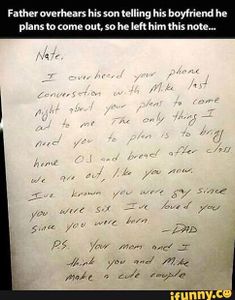 Father overhears his son telling his boyfriend he
plans to come out, so he left him this note...
Nate,
I overheard your phone
conversation with Mike last
night about your plans to come
out to me. The only thing I
need you to plan is to bring
home OJ and bread after class
we are out, like you now.
I've known you were gay since
you were six. I've loved you
since you were born.
-DAD
P.S. Your mom and I
think you and Mike
make a cute couple
ifunny.co